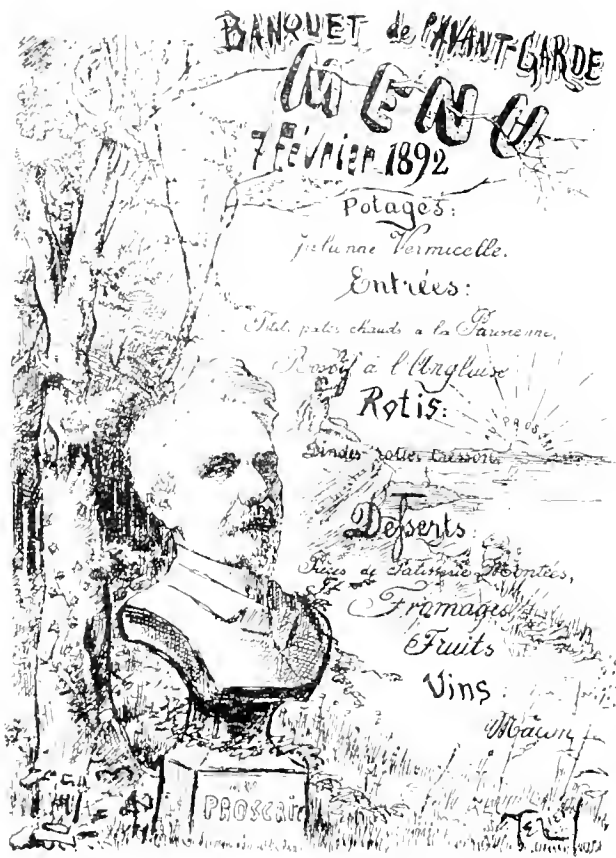 BANQUET de l'AVANT-GARDE
MENU
7 Février 1892
Potages:
Julienne Vermicelle.
Entrées:
Petits patés chauds a la Parisienne,
Rosbif à l'Anglaise
Rotis:
Dindes roties cresson.
Desserts:
Pièces de Patisserie Montées,
Fromages
Fruits
Vins:
Mâcon
PROSCRIT